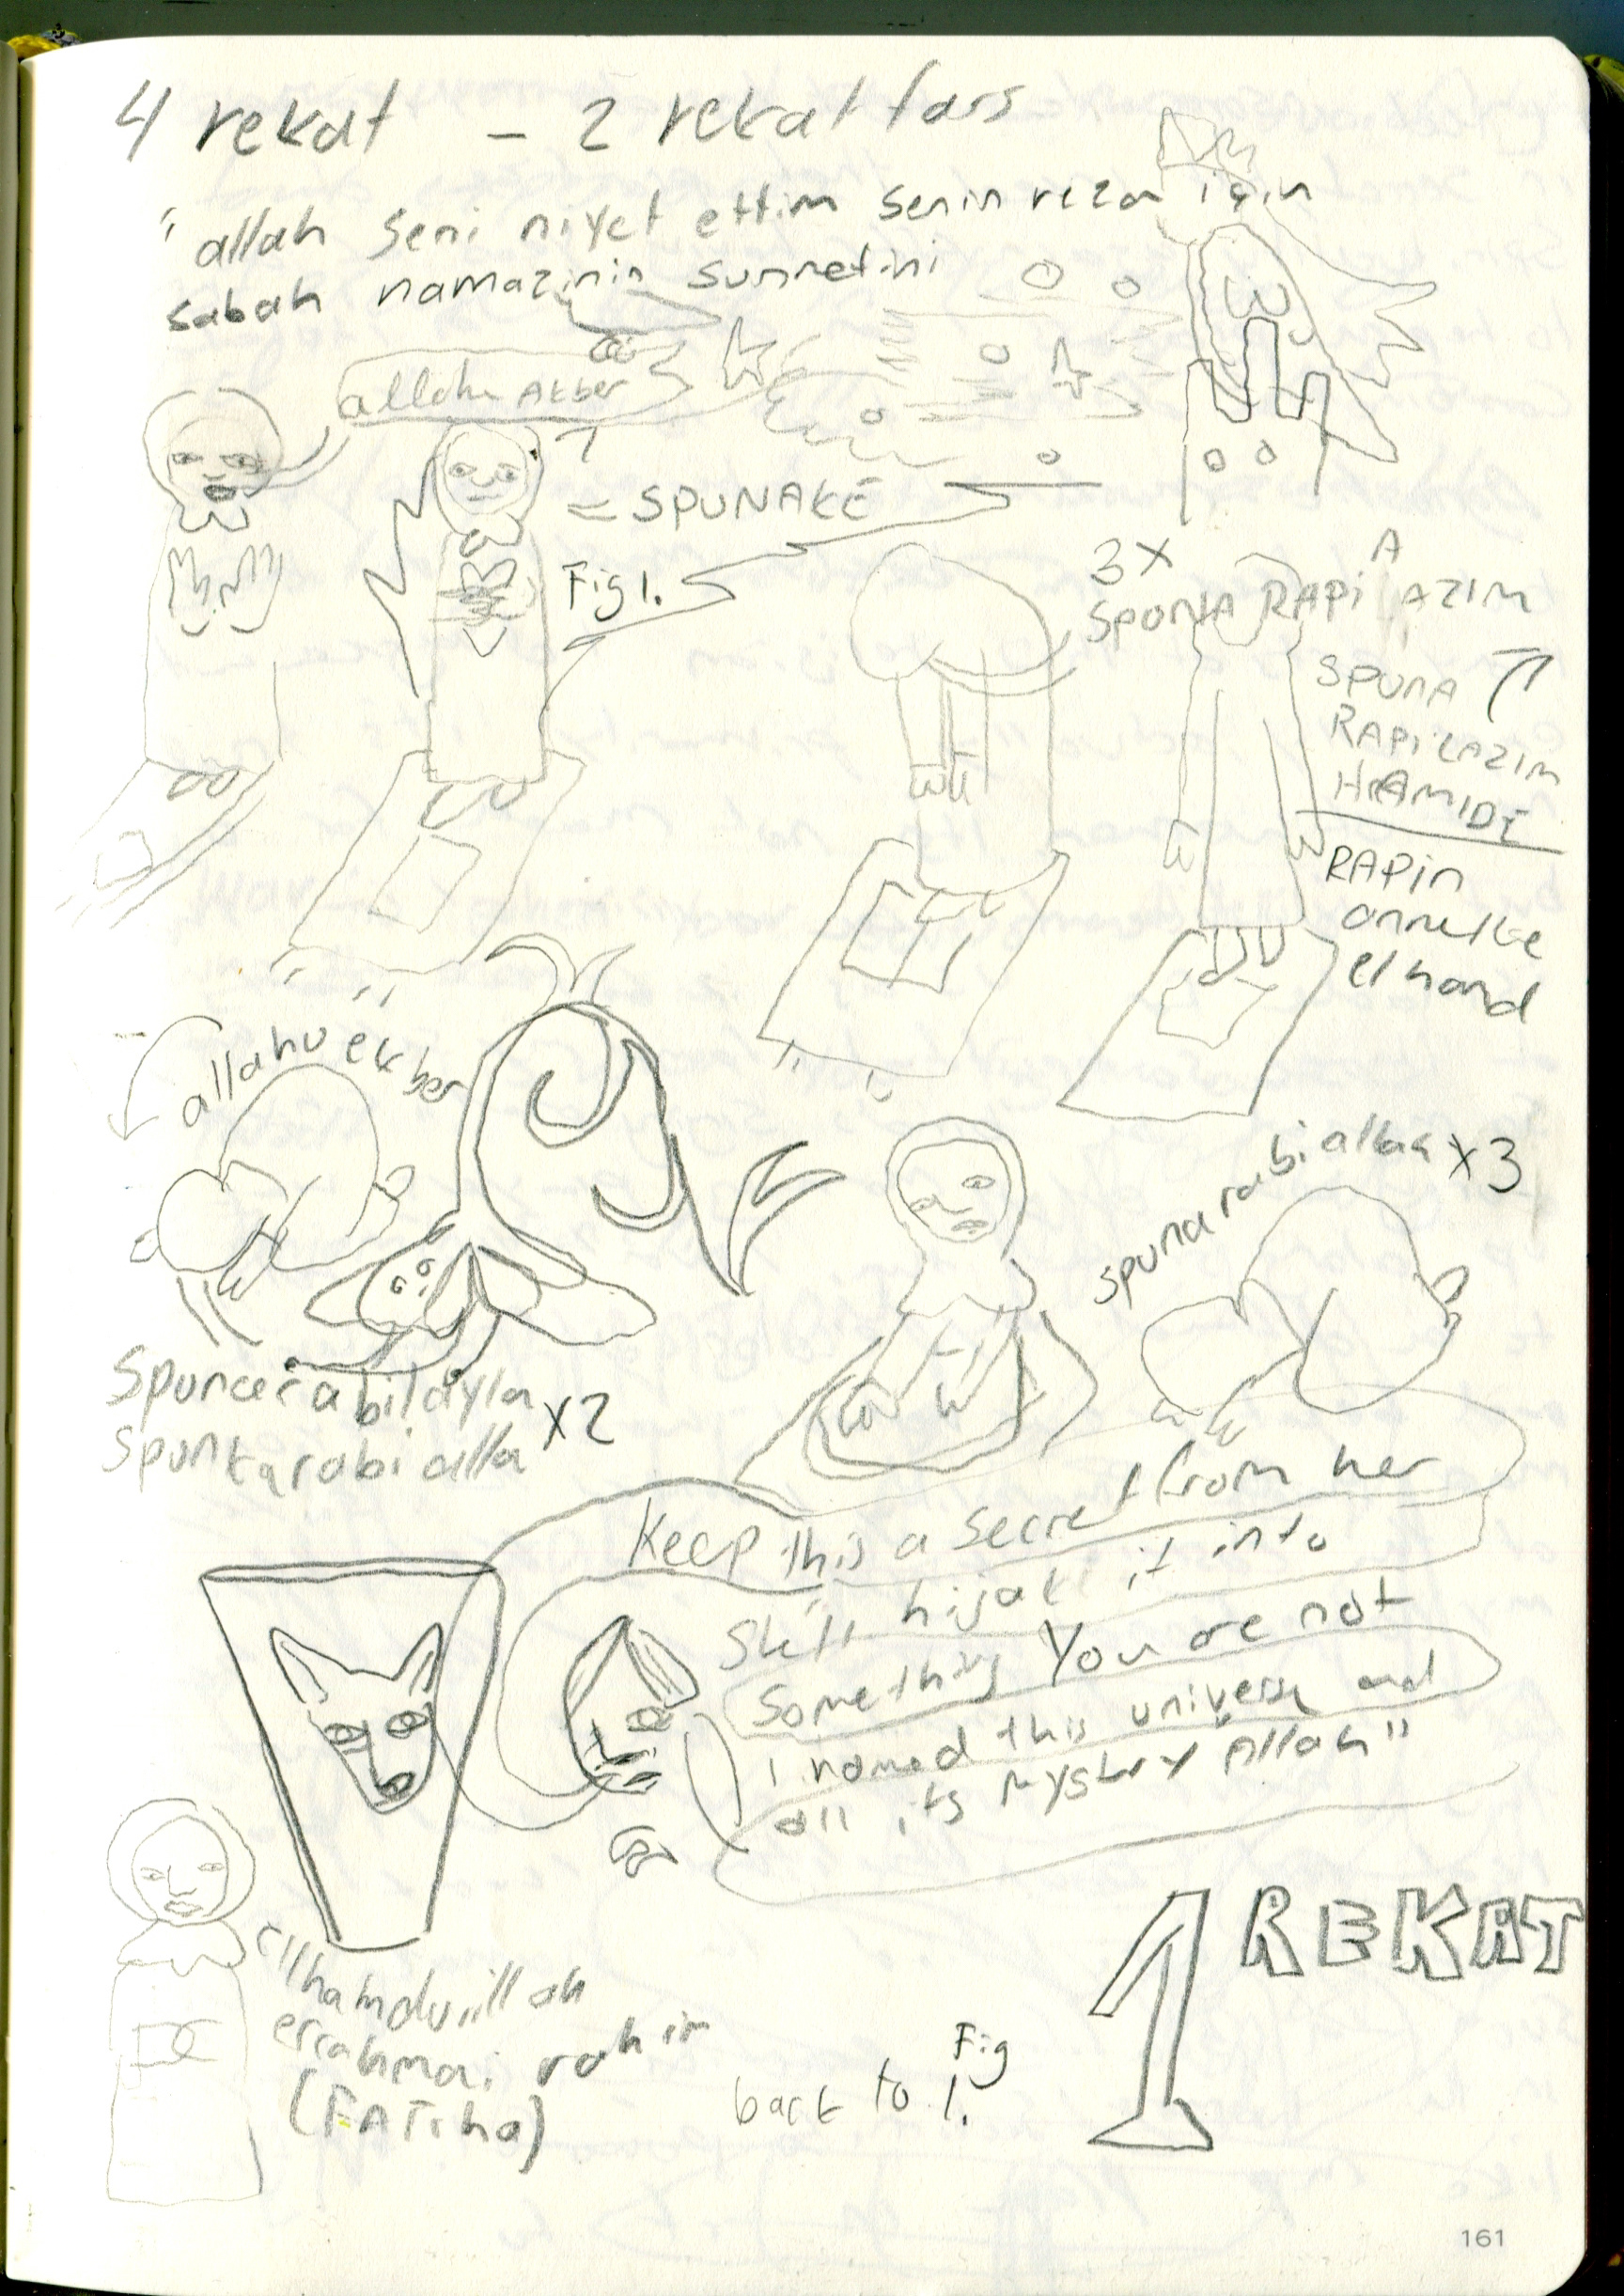 4 rekat - 2 rekat fars
"allah seni niyet ettim senin reza için
sabah namazinin sunnetini
allahu Akber
= SPUNAKE
Fig 1.
3X
SPUNA RAPi A AZIM
SPUNA
RAPiLAZIM
HAMIDE
RAPin
anneke
el hamd
allahu ekber
spuna rabi allah x3
Spuncerabilayla
Spunkarabi alla x2
Keep this a secret from her
She'll hijak it into
Something You are not
I named this universe and
all its mystery Allah"
elhamdulillah
errahmai rahim
(FATiha)
back to Fig 1.
1 REKAT
161